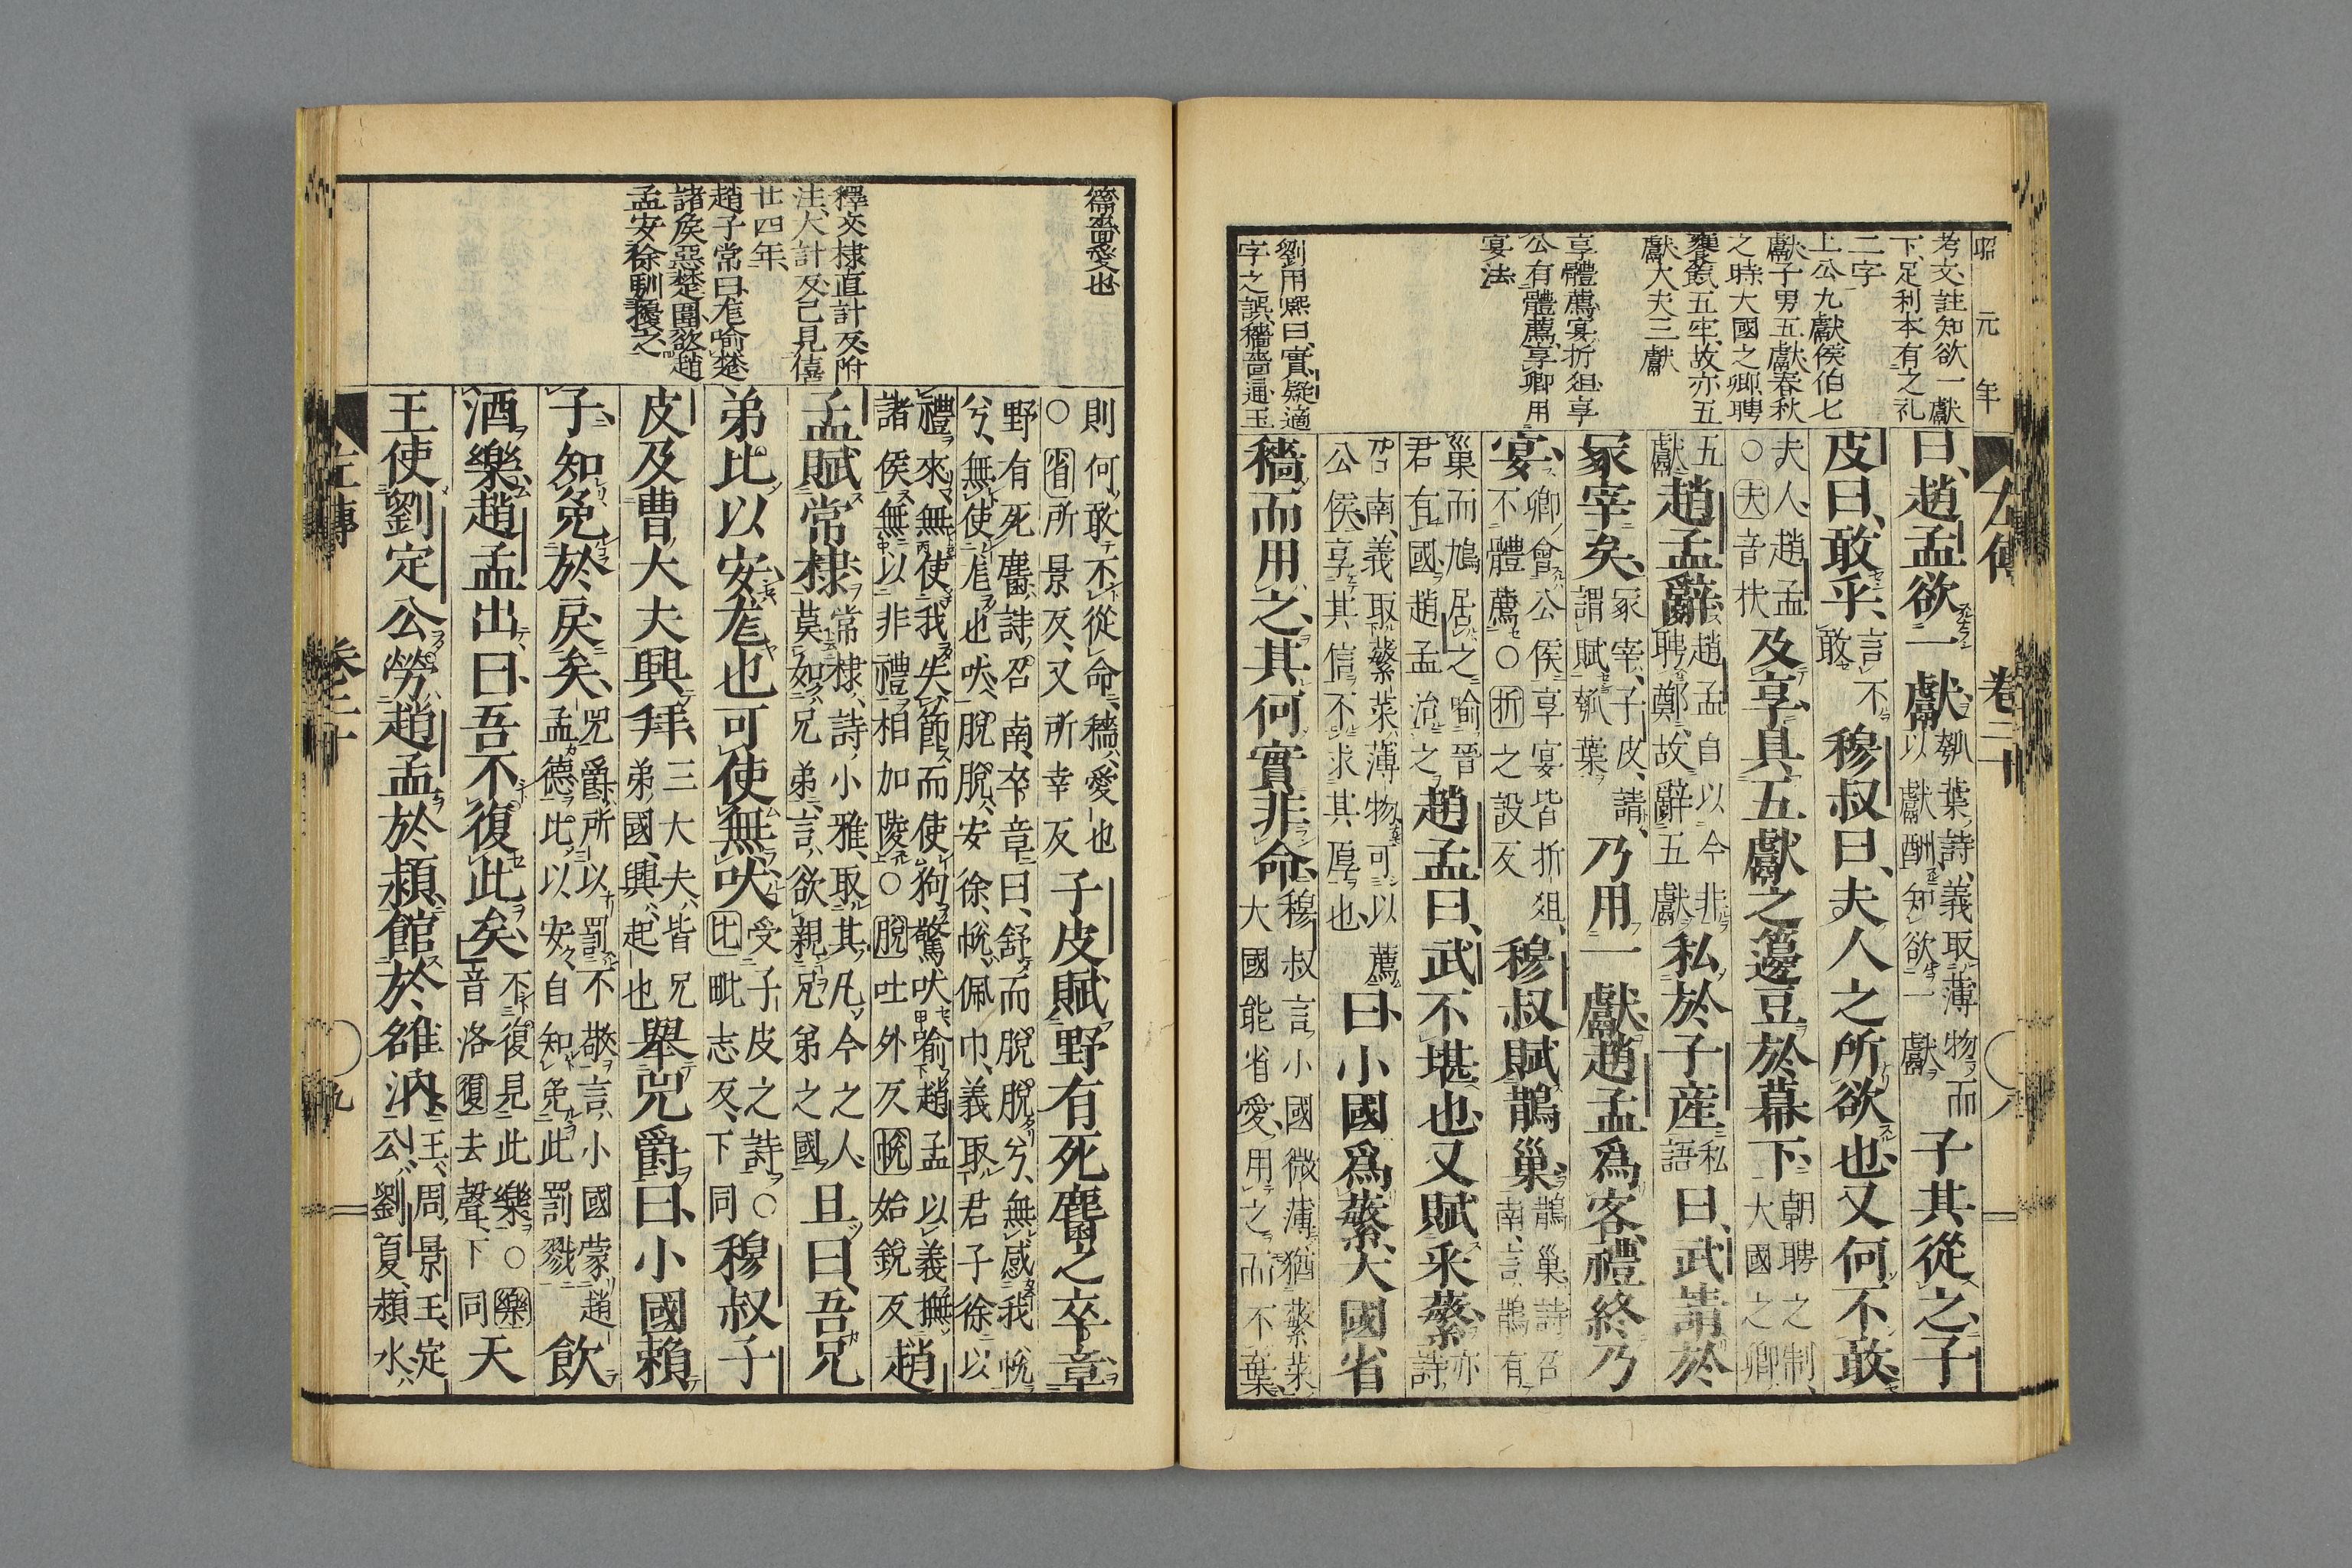 昭元年
考文、註知欲一獻
下、足利本有之礼
二字
上公九獻侯伯七
獻子男五獻春秋
之時大國之卿聘
饔餼五牢、故亦五
獻大夫三獻
享體薦、宴折俎、享
公有體薦、享卿用
宴法
劉用熙曰、實疑適
字之誤、穡嗇通、王
左傳 卷二十
曰、趙孟欲一獻、瓠葉詩、義取薄物而以獻酬、知欲一獻子其從之、子
皮曰、敢乎、言不敢穆叔曰、夫人之所欲也、又何不敢
夫人、趙孟○夫音扶及享、具五獻之籩豆於幕下、朝聘之制、大國之卿、
五獻趙孟辭、趙孟自以今非聘鄭、故辭五獻私於子産私語曰、武請於
冢宰矣、冢宰、子皮、請謂賦瓠葉乃用一獻、趙孟爲客、禮終乃
宴、卿會公侯享宴皆折俎、不體薦○折之設反穆叔賦鵲巢、鵲巢、詩召南、言鵲有
巢而鳩居之、喻晉君有國、趙孟治之趙孟曰、武不堪也、又賦采蘩、亦詩
召南、義取蘩菜薄物、可以薦公侯、享其信、不求其厚也、曰、小國爲蘩、大國省
穡而用之、其何實非命、穆叔言、小國微薄、猶蘩菜大國能省愛、用之而不棄
嗇愛也
釋文、棣直計反、附
注、大計反、已見僖
廿四年、
趙子常曰、尨喻楚
諸侯惡楚圍、欲趙
孟安徐馴擾之、
則何敢不從命、穡、愛也○省所景反、又所幸反子皮賦野有死麕之卒章、
野有死麕、詩召南、卒章曰、舒而脫脫兮、無感我帨兮、無使尨也吠、脫脫、安徐、帨、佩巾、義取君子徐以
禮來、無使我失節、而使狗驚吠、喻趙孟以義撫諸侯、無以非禮相加陵○脫吐外反帨始銳反趙
孟賦常棣、常棣、詩小雅、取其凡今之人、莫如兄弟、言欲親兄弟之國且曰、吾兄
弟比以安、尨也可使無吠、受子皮之詩○比毗志反、下同穆叔子
皮及曹大夫興、拜、三大夫、皆兄弟國、興、起也舉兕爵曰、小國賴
子、知免於戾矣、兕爵、所以罰不敬、言小國蒙趙孟德比以安、自知免此罰戮飲
酒樂、趙孟出曰、吾不復此矣、不復見此樂○樂音洛復去聲、下同天
王使劉定公勞趙孟於潁、館於雒汭、王、周景王、定公、劉夏、潁水、
左傳 卷二十 九